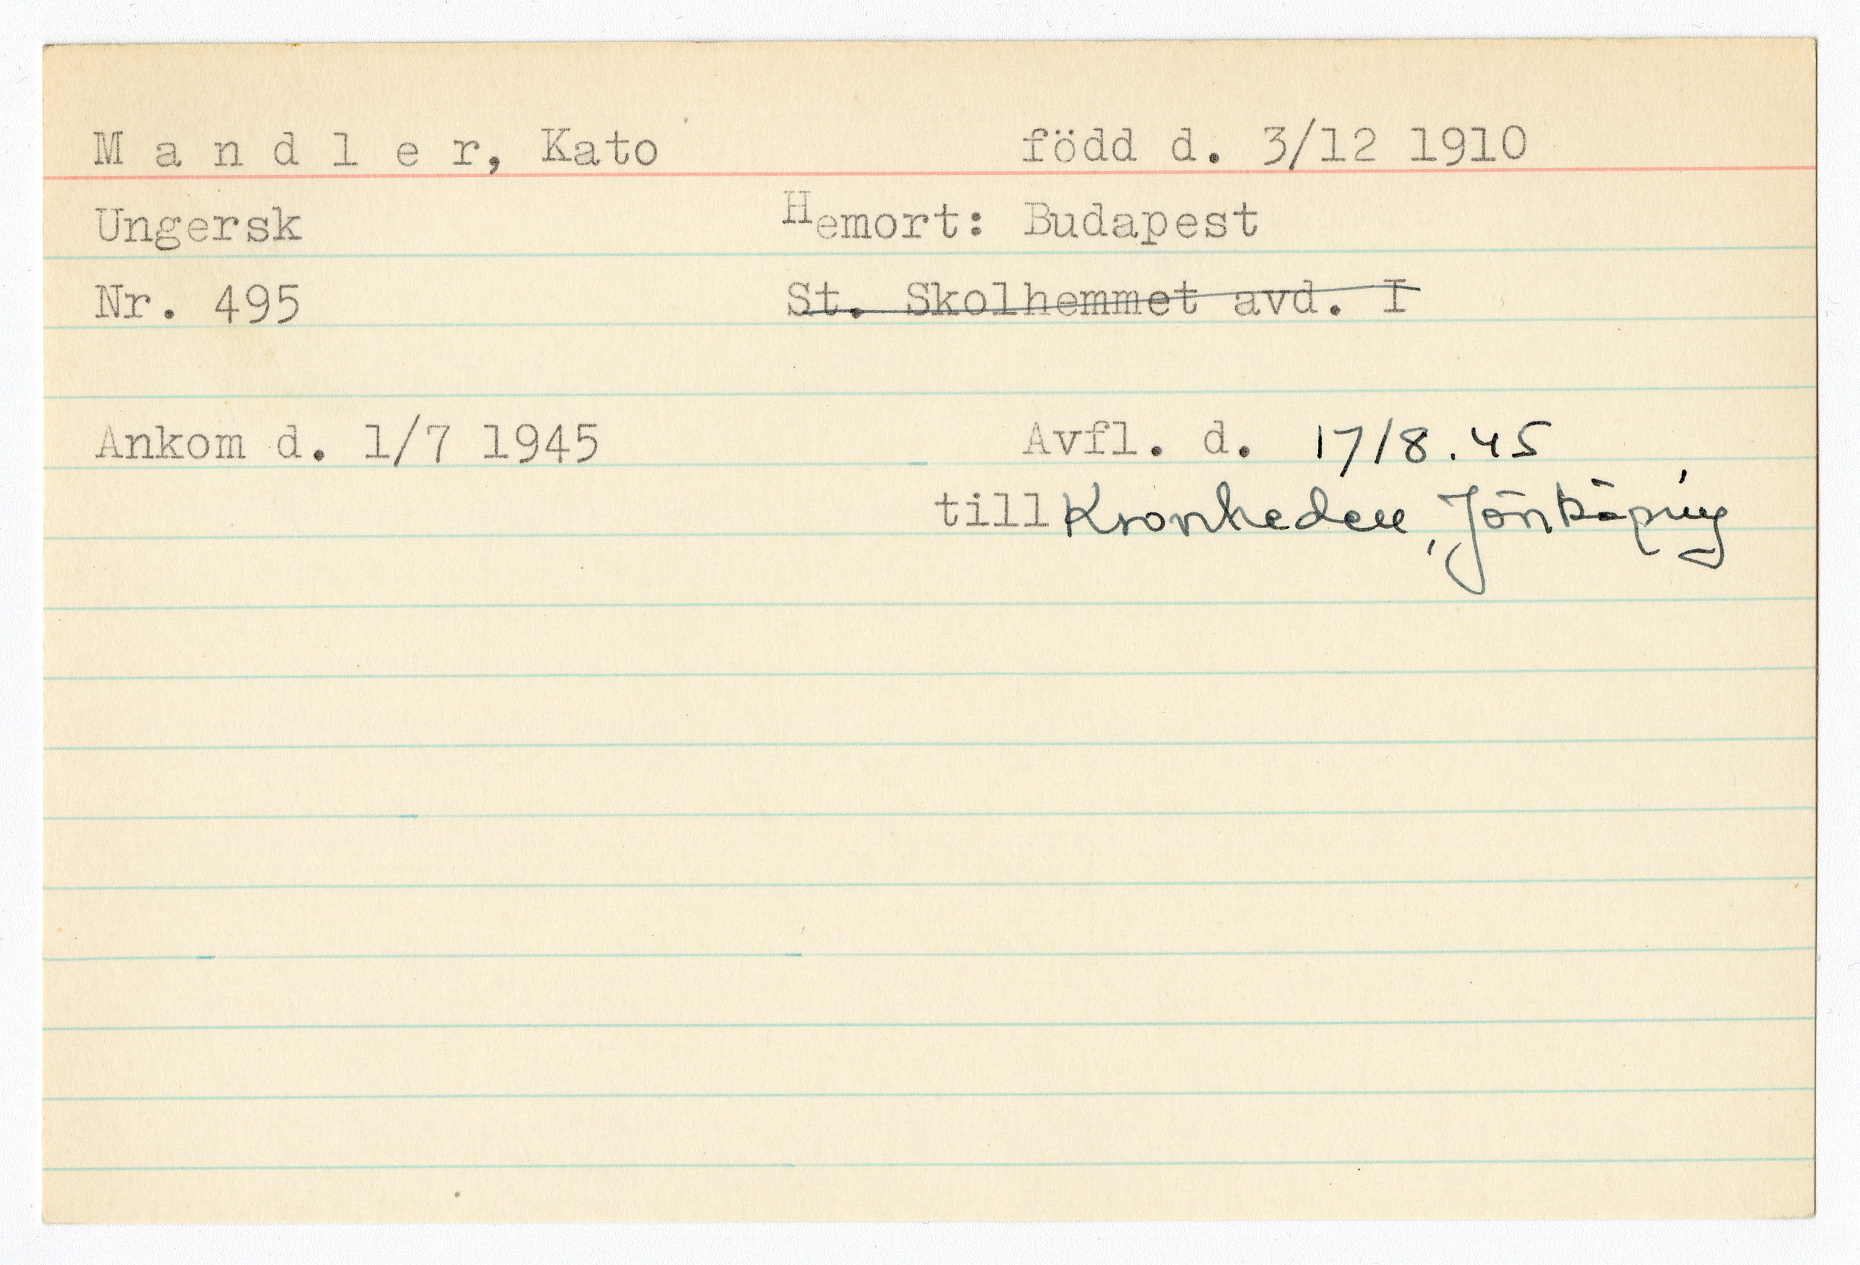 Mandler, Kato född d. 3/12 1910
Ungersk Hemort: Budapest
Nr. 495 St. Skolhemmet avd. I
Ankom d. 1/7 1945 Avfl. d. 17/8.45
till Kronheden, Jönköping